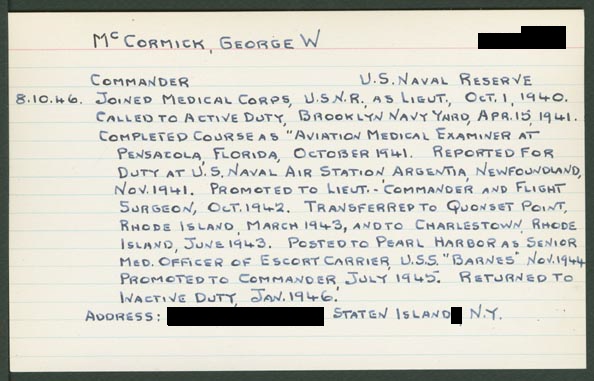 McCORMICK, GEORGE W
COMMANDER U.S. NAVAL RESERVE
8.10.46. JOINED MEDICAL CORPS, U.S.N.R., AS LIEUT., OCT. 1, 1940.
CALLED TO ACTIVE DUTY, BROOKLYN NAVY YARD, APR. 15, 1941.
COMPLETED COURSE AS "AVIATION MEDICAL EXAMINER AT
PENSACOLA, FLORIDA, OCTOBER 1941. REPORTED FOR
DUTY AT U.S. NAVAL AIR STATION ARGENTIA, NEWFOUNDLAND,
NOV. 1941. PROMOTED TO LIEUT.-COMMANDER AND FLIGHT
SURGEON, OCT. 1942. TRANSFERRED TO QUONSET POINT,
RHODE ISLAND, MARCH 1943, AND TO CHARLESTOWN, RHODE
ISLAND, JUNE 1943. POSTED TO PEARL HARBOR AS SENIOR
MED. OFFICER OF ESCORT CARRIER, U.S.S. "BARNES" NOV. 1944
PROMOTED TO COMMANDER, JULY 1945. RETURNED TO
INACTIVE DUTY, JAN. 1946.
ADDRESS: STATEN ISLAND, N.Y.